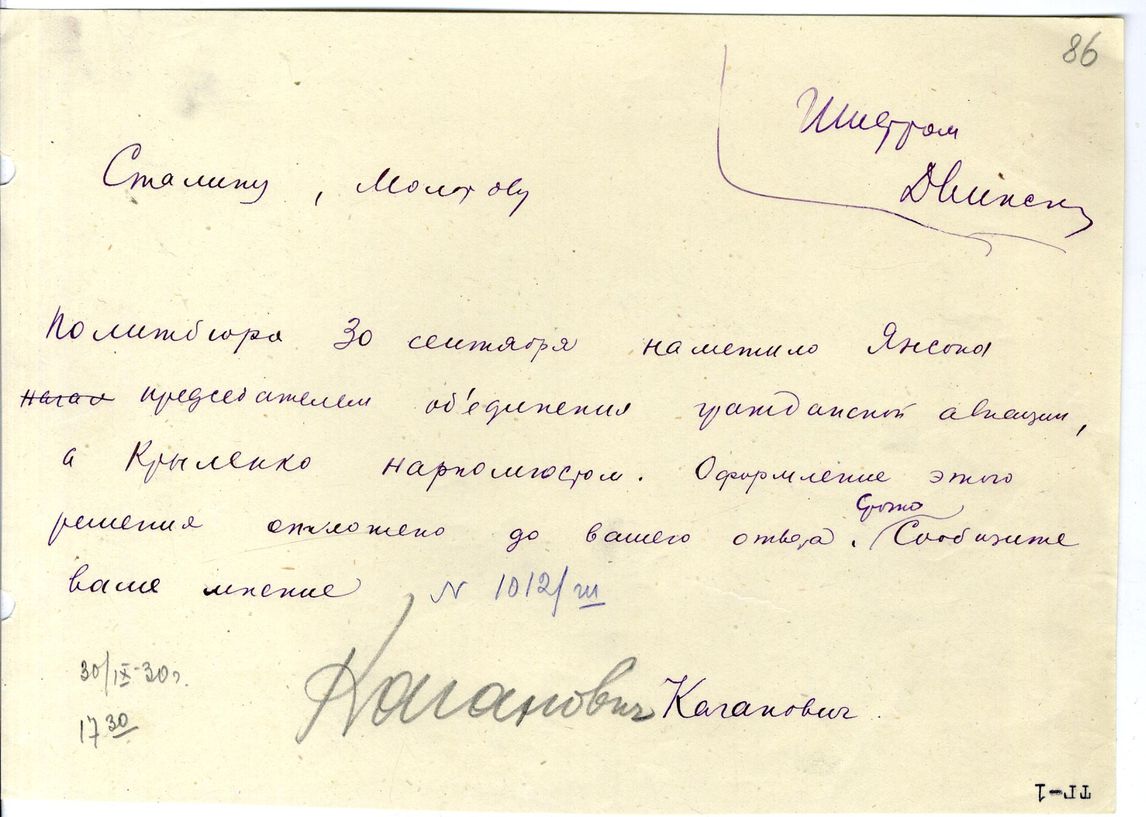 86
Шифром
Двинск
Сталину, Молотову
Политбюро 30 сентября наметило Янсона
начал председателем об'единения гражданской авиации,
а Крыленко наркомюстом. Оформление этого
решения отложено до вашего ответа. Срочно Сообщите
ваше мнение N 1012/ш
30/IX-30г.
17 30
Каганович Каганович
ТГ-1